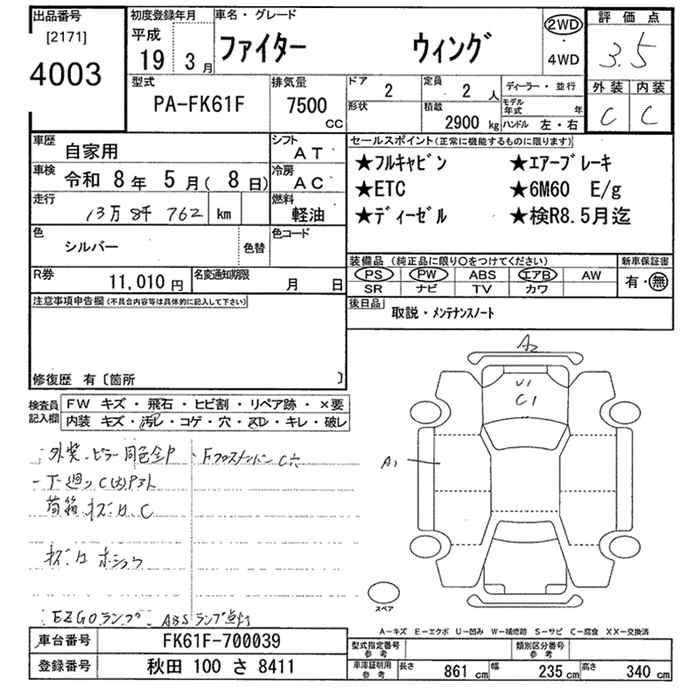 出品番号 初度登録年月 車名・グレード 評価点
[2171] 平成 2WD
4003 19年 3月 ファイター ウィング ・ 3.5
4WD
型式 排気量 ドア 2 定員 2人 ディーラー・並行 外装 内装
PA-FK61F 7500 cc 形状 積載 2900 kg モデル年式 年 C C
ハンドル 左・右
車歴 自家用 シフト AT セールスポイント(正常に機能するものに限ります)
車検 令和 8年 5月( 8日) 冷房 AC ★フルキャビン ★エアーブレーキ
走行 13万 8千 762 km 燃料 軽油 ★ETC ★6M60 E/g
★ディーゼル ★検R8.5月迄
色 シルバー 色替 色コード
装備品 (純正品に限り〇をつけてください) 新車保証書
R券 11,010円 名変通知期限 月 日 PS PW ABS エアB AW 有・無
SR ナビ TV カワ
注意事項申告欄(不具合内容等は具体的に記入して下さい) 後日品 取説・メンテナンスノート
修復歴 有〔箇所 〕
A2
検査員記入欄 FW キズ・飛石・ヒビ割・リペア跡・×要
内装 キズ・汚レ・コゲ・穴・スレ・キレ・破レ
U1
C1
A1
外装 ピラー 同色全P
下廻り C
荷箱 キズ・凹 C
キズ凹 ホシュウ
EZGOランプ ABSランプ点灯
スペア
A-キズ E-エクボ U-凹み W-補修跡 S-サビ C-腐食 XX-交換済
車台番号 FK61F-700039 型式指定番号 参考 類別区分番号 参考
登録番号 秋田 100 さ 8411 車庫証明用 参考 長さ 861cm 幅 235cm 高さ 340cm